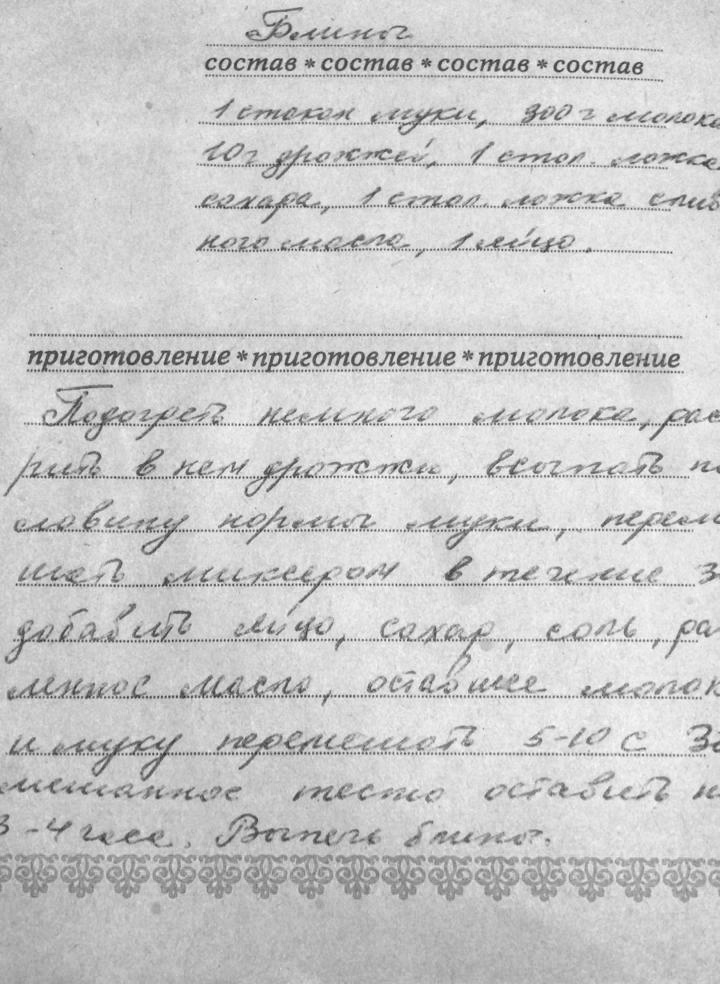 Блины
состав * состав * состав * состав
1 стакан муки, 300 г молока
10 г дрожжей, 1 стол. ложка
сахара, 1 стол. ложка слив
ного масла, 1 яйцо.
приготовление * приготовление * приготовление
Подогреть немного молока, рас
рить в нем дрожжи, всыпать по
ловину нормы муки, перем
шать миксером в течение 3
добавить яйцо, сахар, соль, рас
ленное масло, оставшее молок
и муку перемешать 5-10 с За
мешанное тесто оставить н
3-4 часа. Выпечь блины.